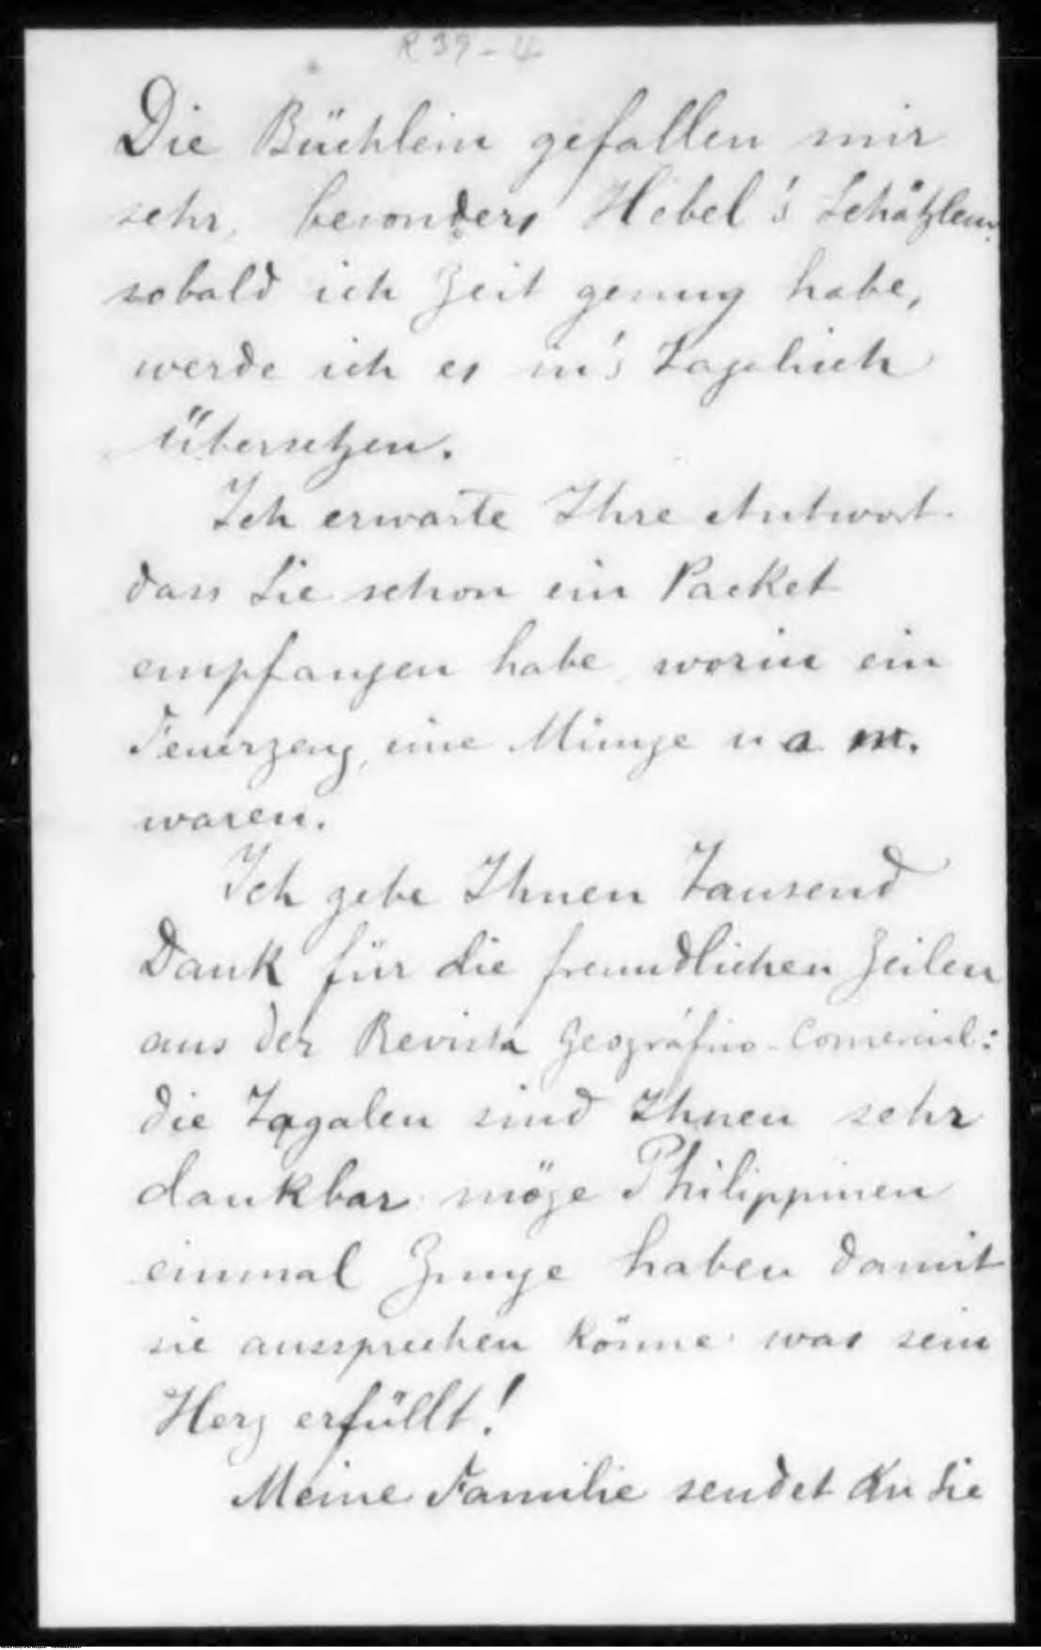 R 39-4
Die Büchlein gefallen mir
sehr, besonders Hebel's Schätzlein.
sobald ich Zeit genug habe,
werde ich es in's Tagalisch
übersetzen.
Ich erwarte Ihre Antwort.
dass Sie schon ein Packet
empfangen habe, worin ein
Feuerzeug, eine Münze u a m.
waren.
Ich gebe Ihnen Tausend
Dank für die freundlichen Zeilen
aus der Revista Geográfico-Comercial:
die Tagalen sind Ihnen sehr
dankbar. möge Philippinen
einmal Zunge haben damit
sie aussprechen könne was sein
Herz erfüllt!
Meine Familie sendet an Sie